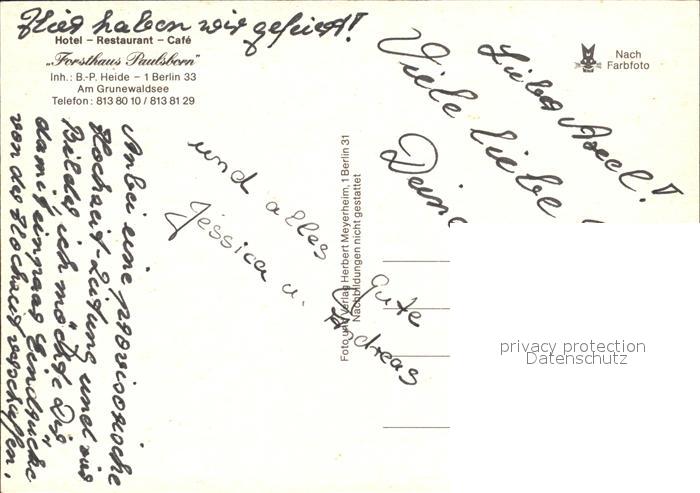 Hier haben wir gefeiert!
Hotel – Restaurant – Café
„Forsthaus Paulsborn"
Inh.: B.-P. Heide – 1 Berlin 33
Am Grunewaldsee
Telefon: 813 80 10 / 813 81 29
Nach
Farbfoto
Lieber Axel!
Viele liebe
Deine
und alles Gute
Jessica u. Andreas
Anbei eine provisorische
Hochzeit-Zeitung und
Bilder, ich möchte Dir
damit ein paar Eindrücke
von der Hochzeit verschaffen.
Foto und Verlag Herbert Meyerheim, 1 Berlin 31
Nachbildungen nicht gestattet
privacy protection
Datenschutz